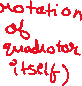 rotation
of
quadrotor
itself)